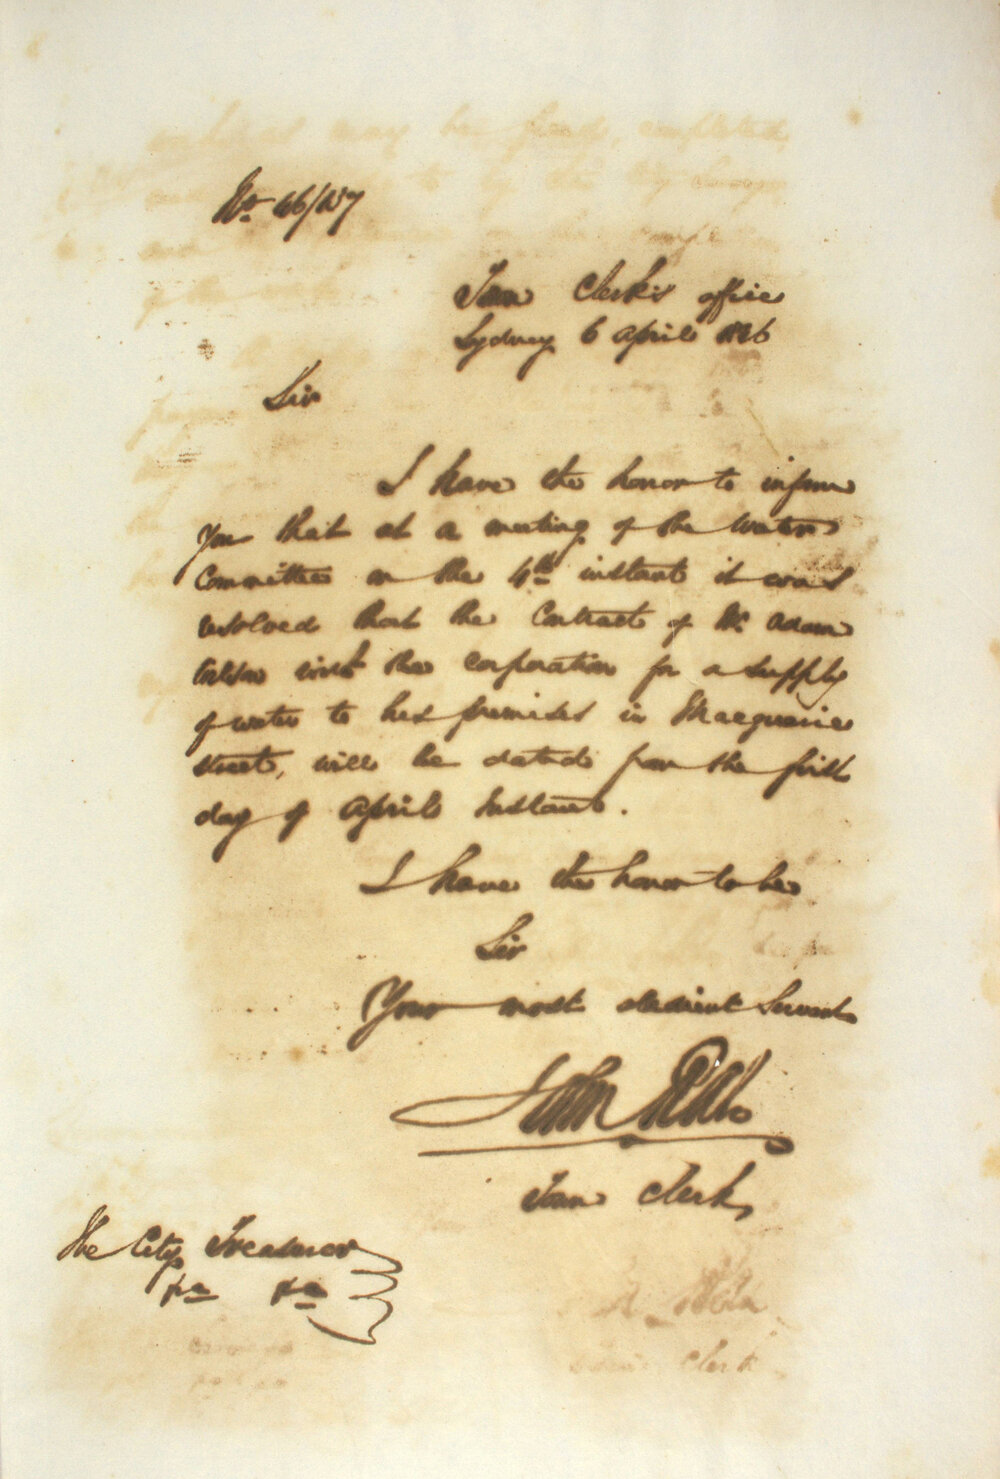 No. 46/157
Town Clerk's office
Sydney 6 April 1846
Sir
I have the honor to inform
you that at a meeting of the Water
Committee on the 4th instant it was
resolved that the Contract of Mr. Adam
Wilson with the corporation for a supply
of water to his premises in Macquarie
street, will be dated from the first
day of April Instant.
I have the honor to be
Sir
Your most obedient Servant
John
Town Clerk
The City Treasurer
&c &c